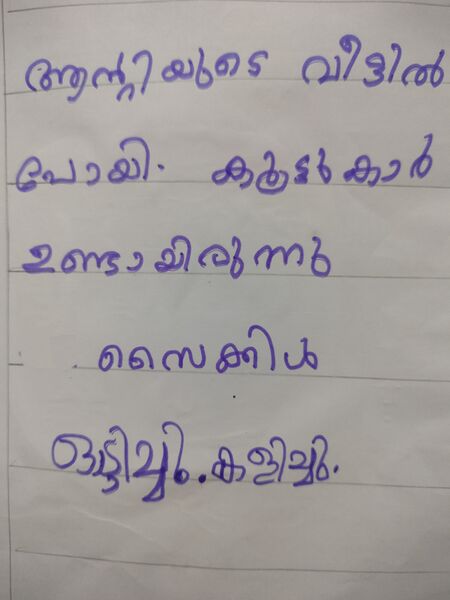 ആൻ്റിയുടെ വീട്ടിൽ
പോയി. കൂട്ടുകാർ
ഉണ്ടായിരുന്നു
സൈക്കിൾ
ഓട്ടിച്ചു. കളിച്ചു.